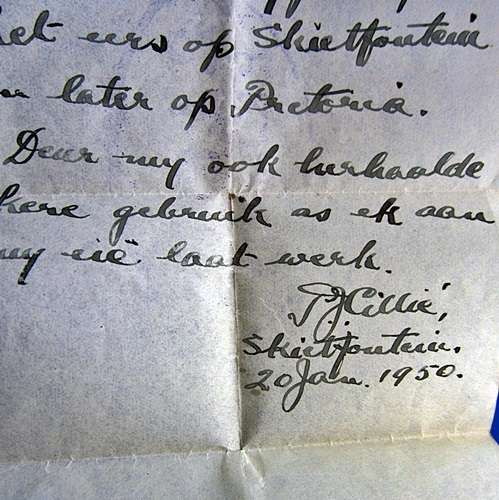 eers op Skietfontein
later op Pretoria.
Deur my ook herhaalde
kere gebruik as ek aan
my eië laat werk.
P.J. Cillié,
Skietfontein.
20 Jan. 1950.